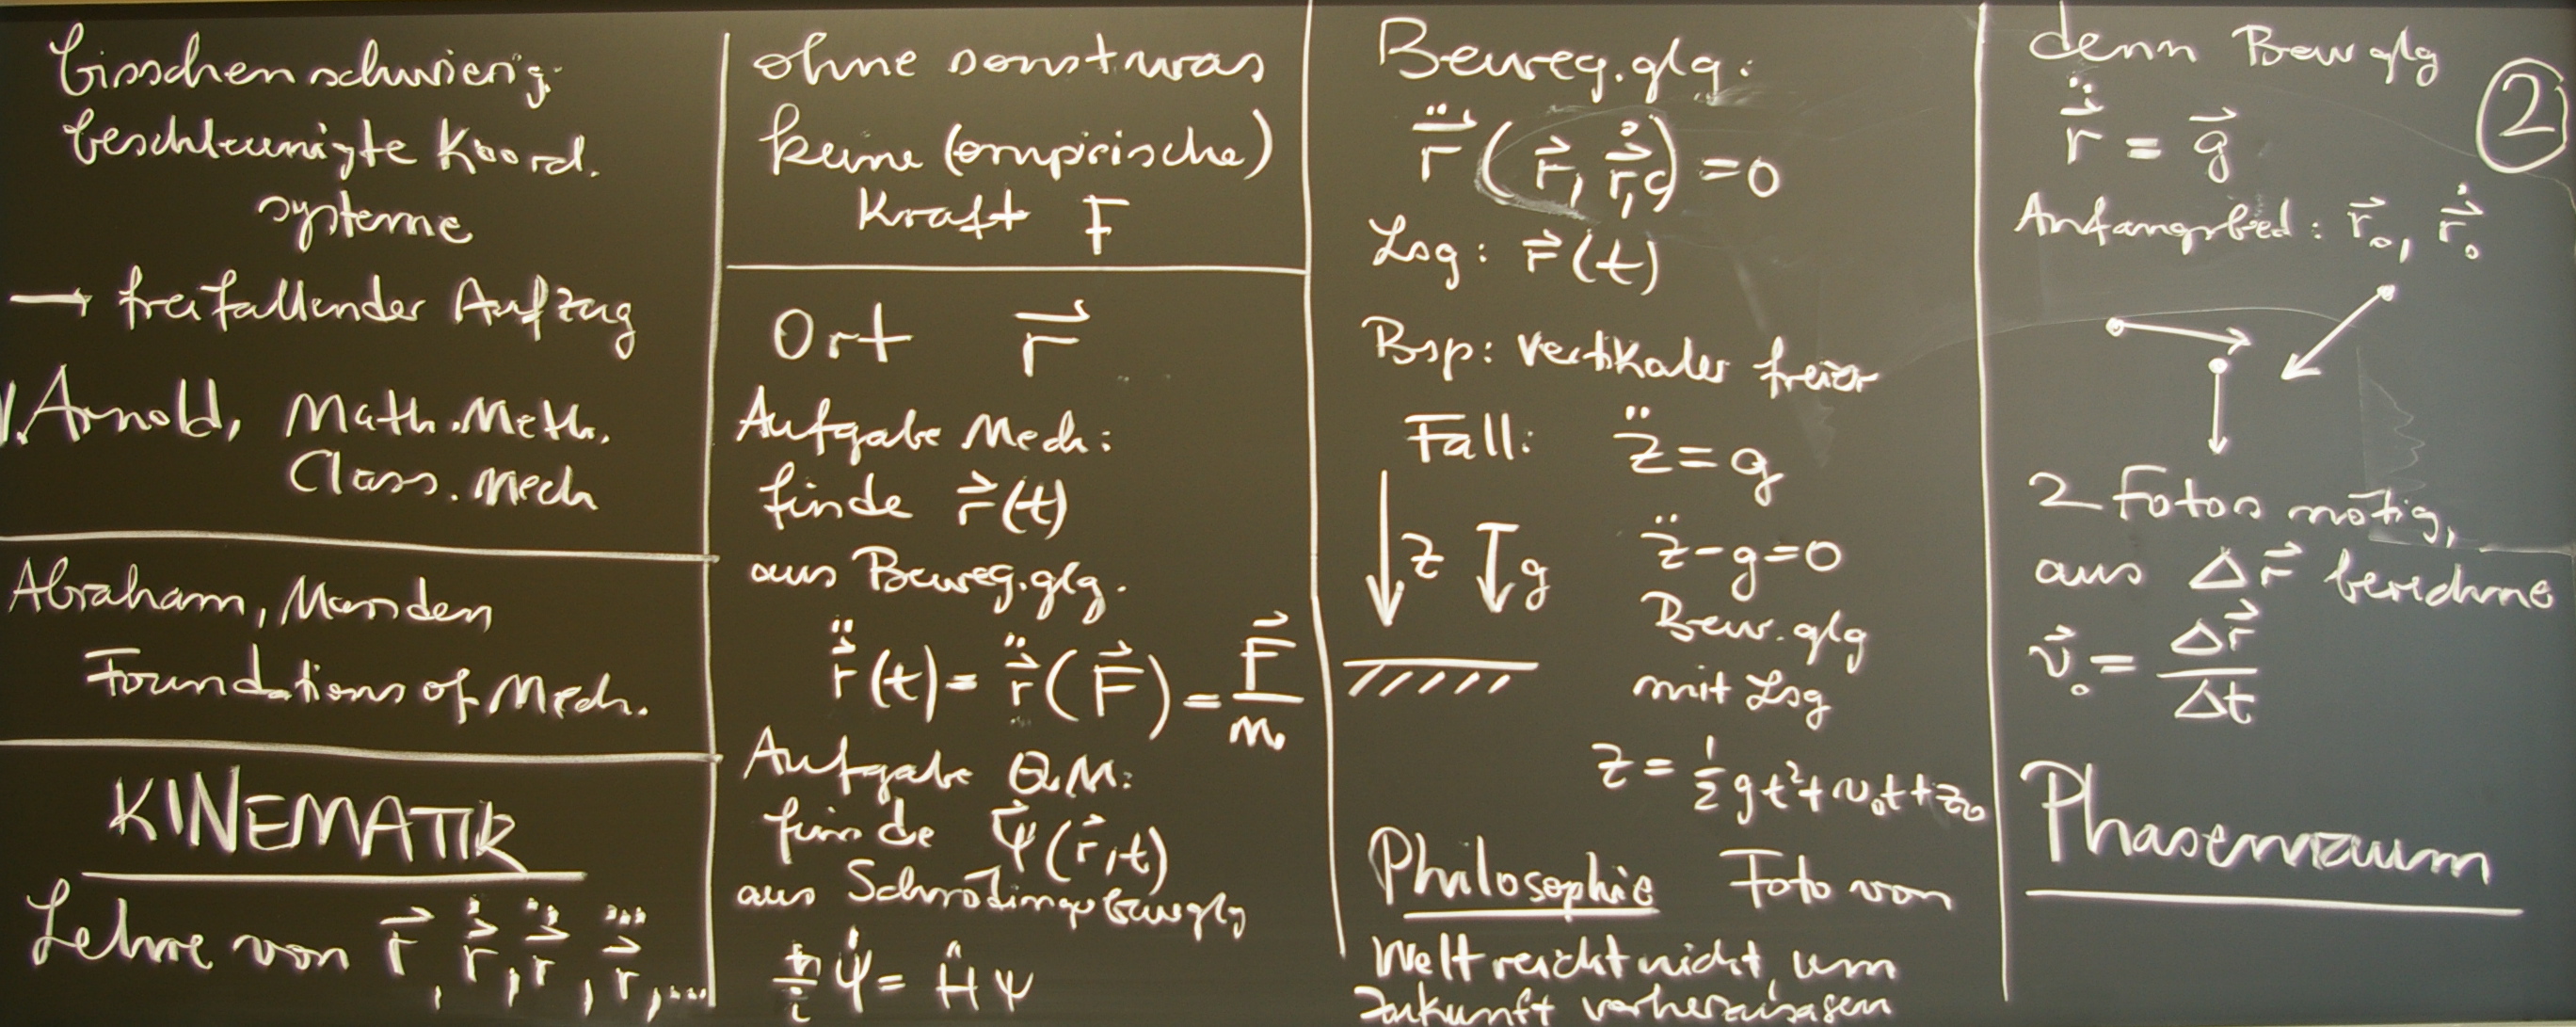 bisschen schwierig:
beschleunigte Koord.
systeme
→ frei fallender Aufzug
V. Arnold, Math. Meth.
Class. Mech
Abraham, Marsden
Foundations of Mech.
KINEMATIK
Lehre von r⃗, r⃗̇, r⃗̈, r⃗⃛, ...
ohne sonstwas
keine (empirische)
Kraft F
Ort r⃗
Aufgabe Mech:
finde r⃗(t)
aus Beweg.glg.
r⃗̈(t) = r⃗̈(F⃗) = F⃗/m
Aufgabe QM:
finde Ψ(r⃗,t)
aus Schrödingerbewglg
ħ/i Ψ̇ = Ĥ Ψ
Beweg.glg:
r⃗̈(r⃗, r⃗̇, ) = 0
Lsg: r⃗(t)
Bsp: vertikaler freier
Fall: z̈ = g
z g z̈ - g = 0
Bew.glg
mit Lsg
z = ½ g t² + v₀t + z₀
Philosophie Foto von
Welt reicht nicht, um
Zukunft vorherzusagen
denn Bew glg
②
r⃗̈ = g⃗
Anfangsbed: r⃗₀, r⃗̇₀
2 Fotos nötig,
aus Δr⃗ berechne
v⃗₀ = Δr⃗/Δt
Phasenraum